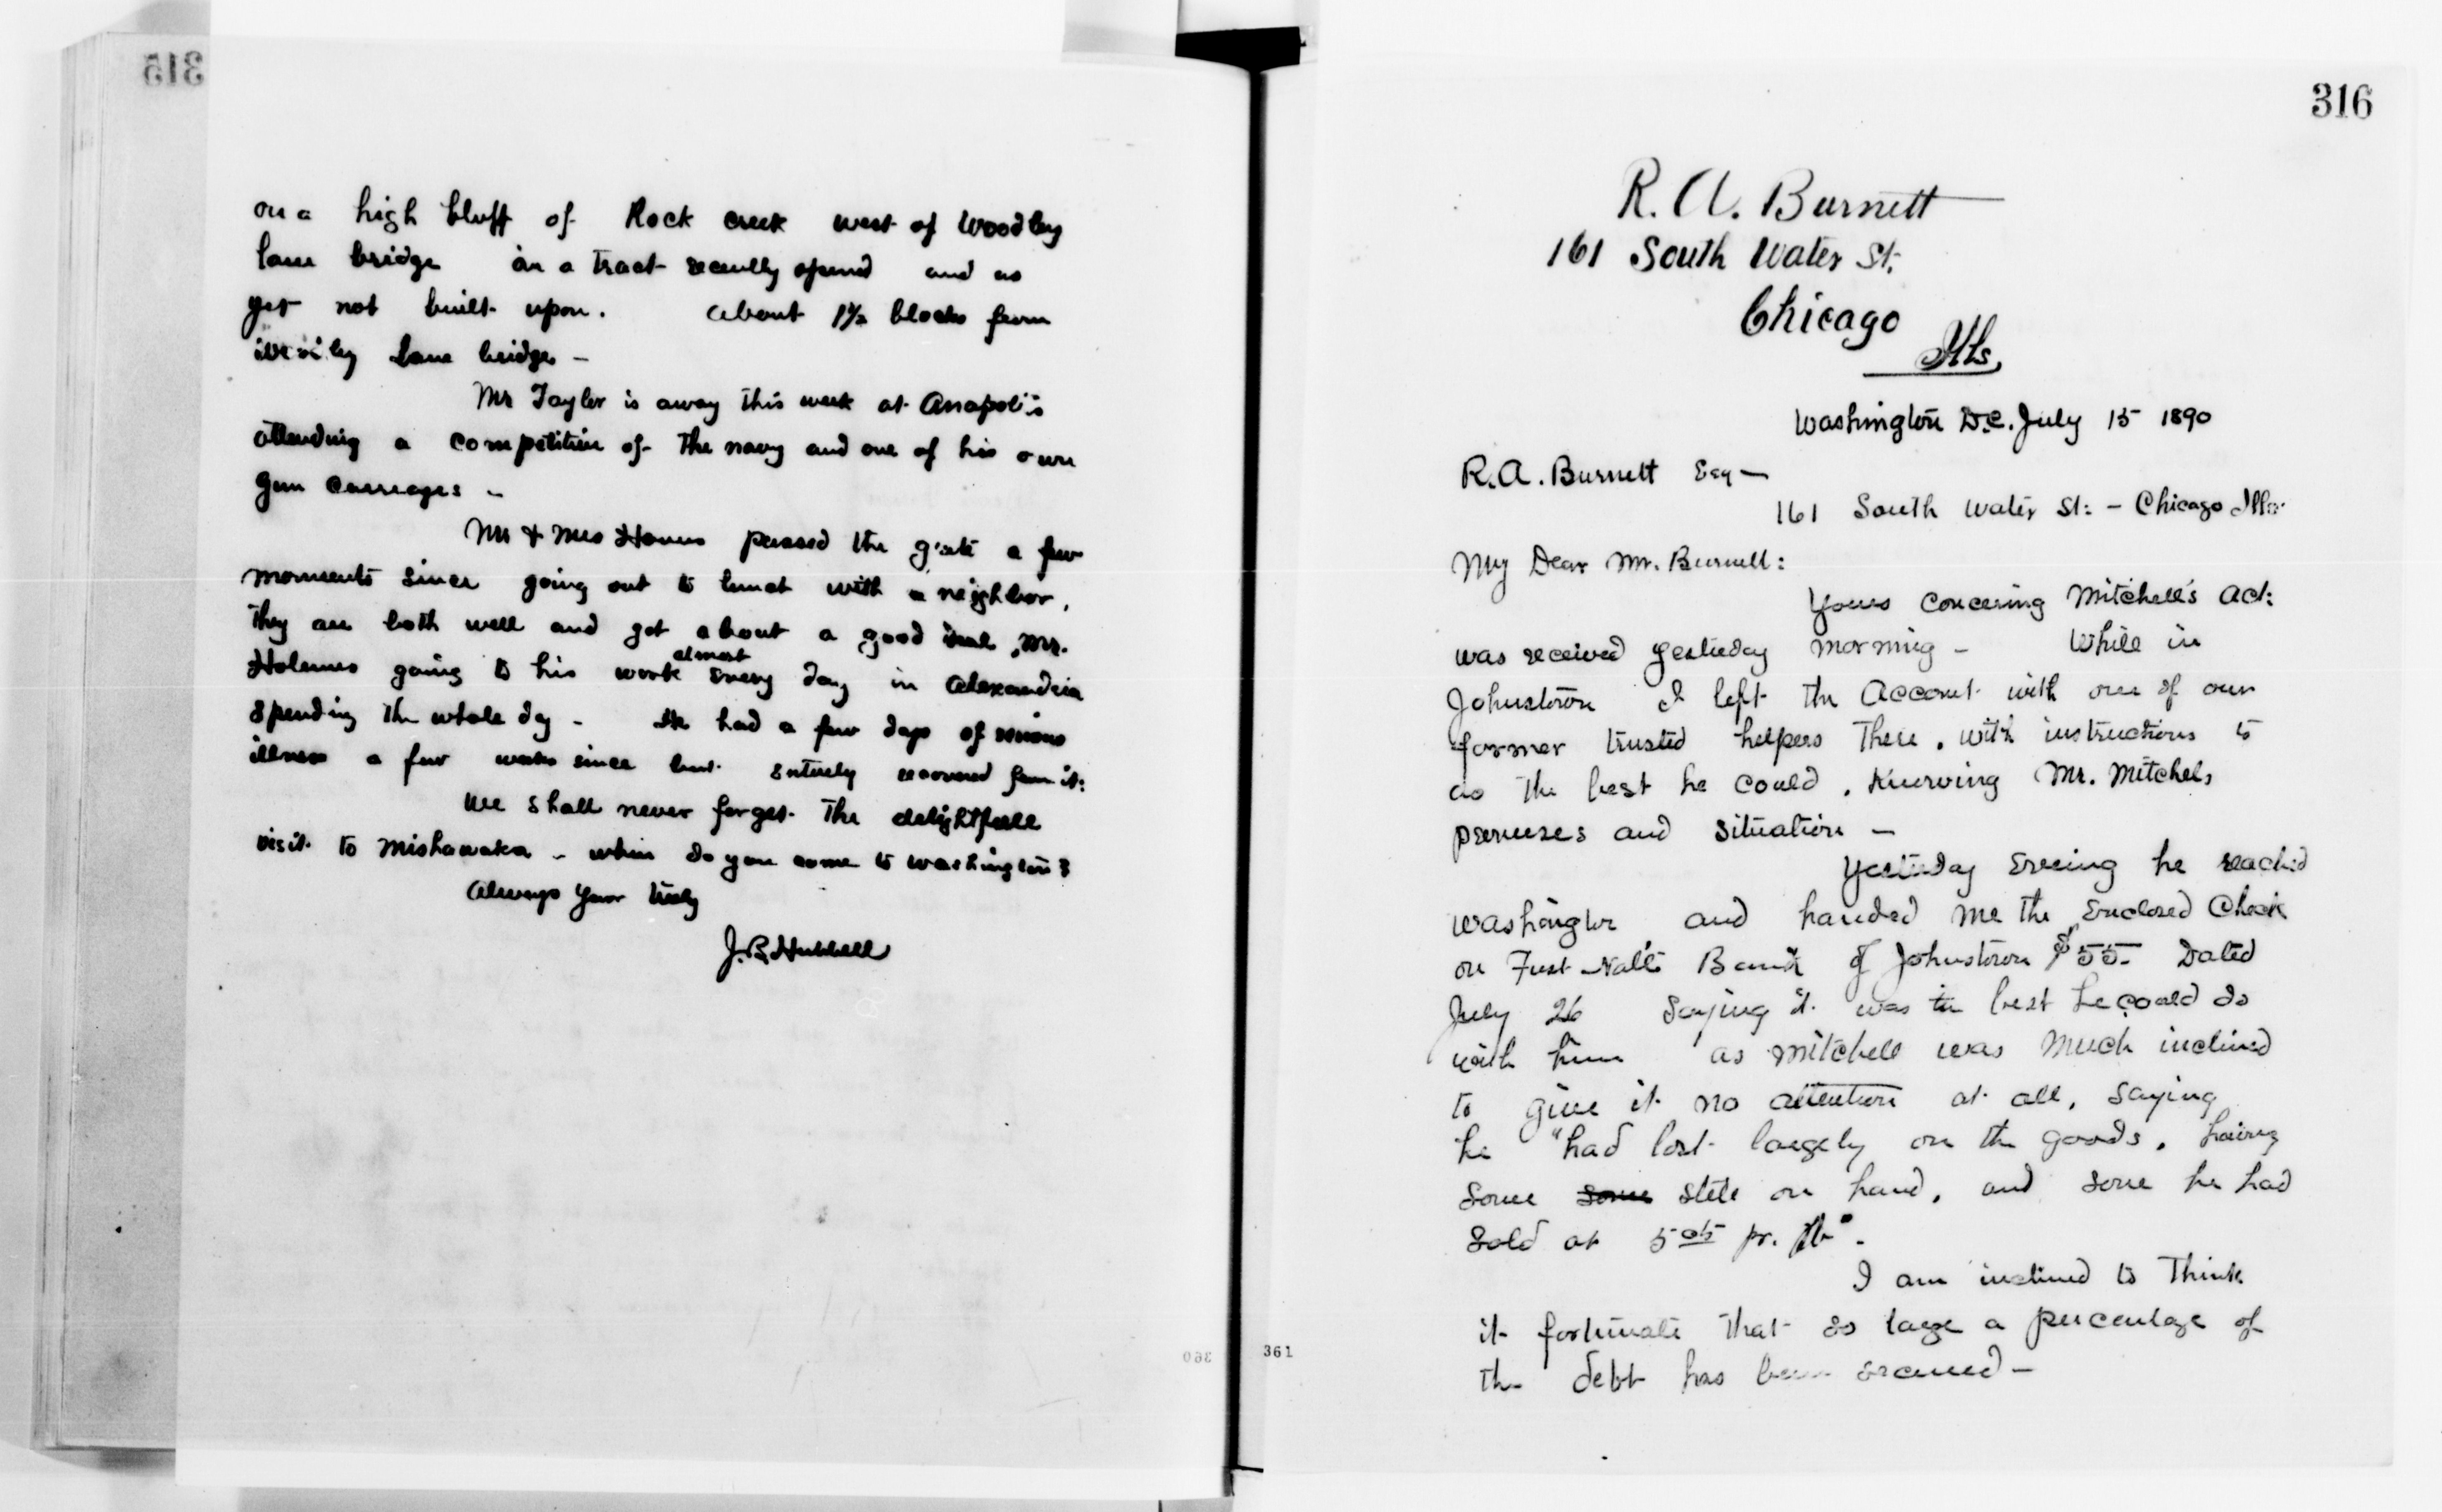 315
on a high bluff of Rock creek west of Woodley
lane bridge in a tract recently opened and as
yet not built upon. about 1½ blocks from
Woodley Lane bridge –
Mr Taylor is away this week at Anapolis
attending a competition of the navy and one of his own
gun carriages –
Mr & Mrs Holmes passed the gate a few
moments since going out to lunch with a neighbor,
They are both well and get about a good deal, Mr.
almost
Holmes going to his work every day in Alexandria
spending the whole day – He had a few days of serious
illness a few weeks since but entirely recovered from it:
We shall never forget the delightfull
visit to Mishawaka – when do you come to Washington?
Always your truly
J. B. Hubbell
360
316
R. A. Burnett
161 South Water St.
Chicago
Ills,
Washington D.C. July 15 1890
R. A. Burnett Esq –
161 South Water St: – Chicago Ills.
My Dear Mr. Burnett:
Yours concering Mitchell's Act:
was received yesterday morning – While in
Johnstown I left the Account with one of our
former trusted helpers there, with instructions to
do the best he could, knowing Mr. Mitchels
premises and situation –
Yesterday Evening he reached
Washington and handed me the Enclosed Check
on First Natl's Bank of Johnstown $55– Dated
July 26 Saying it was the best he could do
with him as Mitchell was much inclined
to give it no attention at all, saying
he "had lost largely on the goods, having
some some still on hand, and some he had
sold at 5 cts pr. lb".
I am inclined to think
it fortunate that so large a percentage of
the debt has been secured –
361